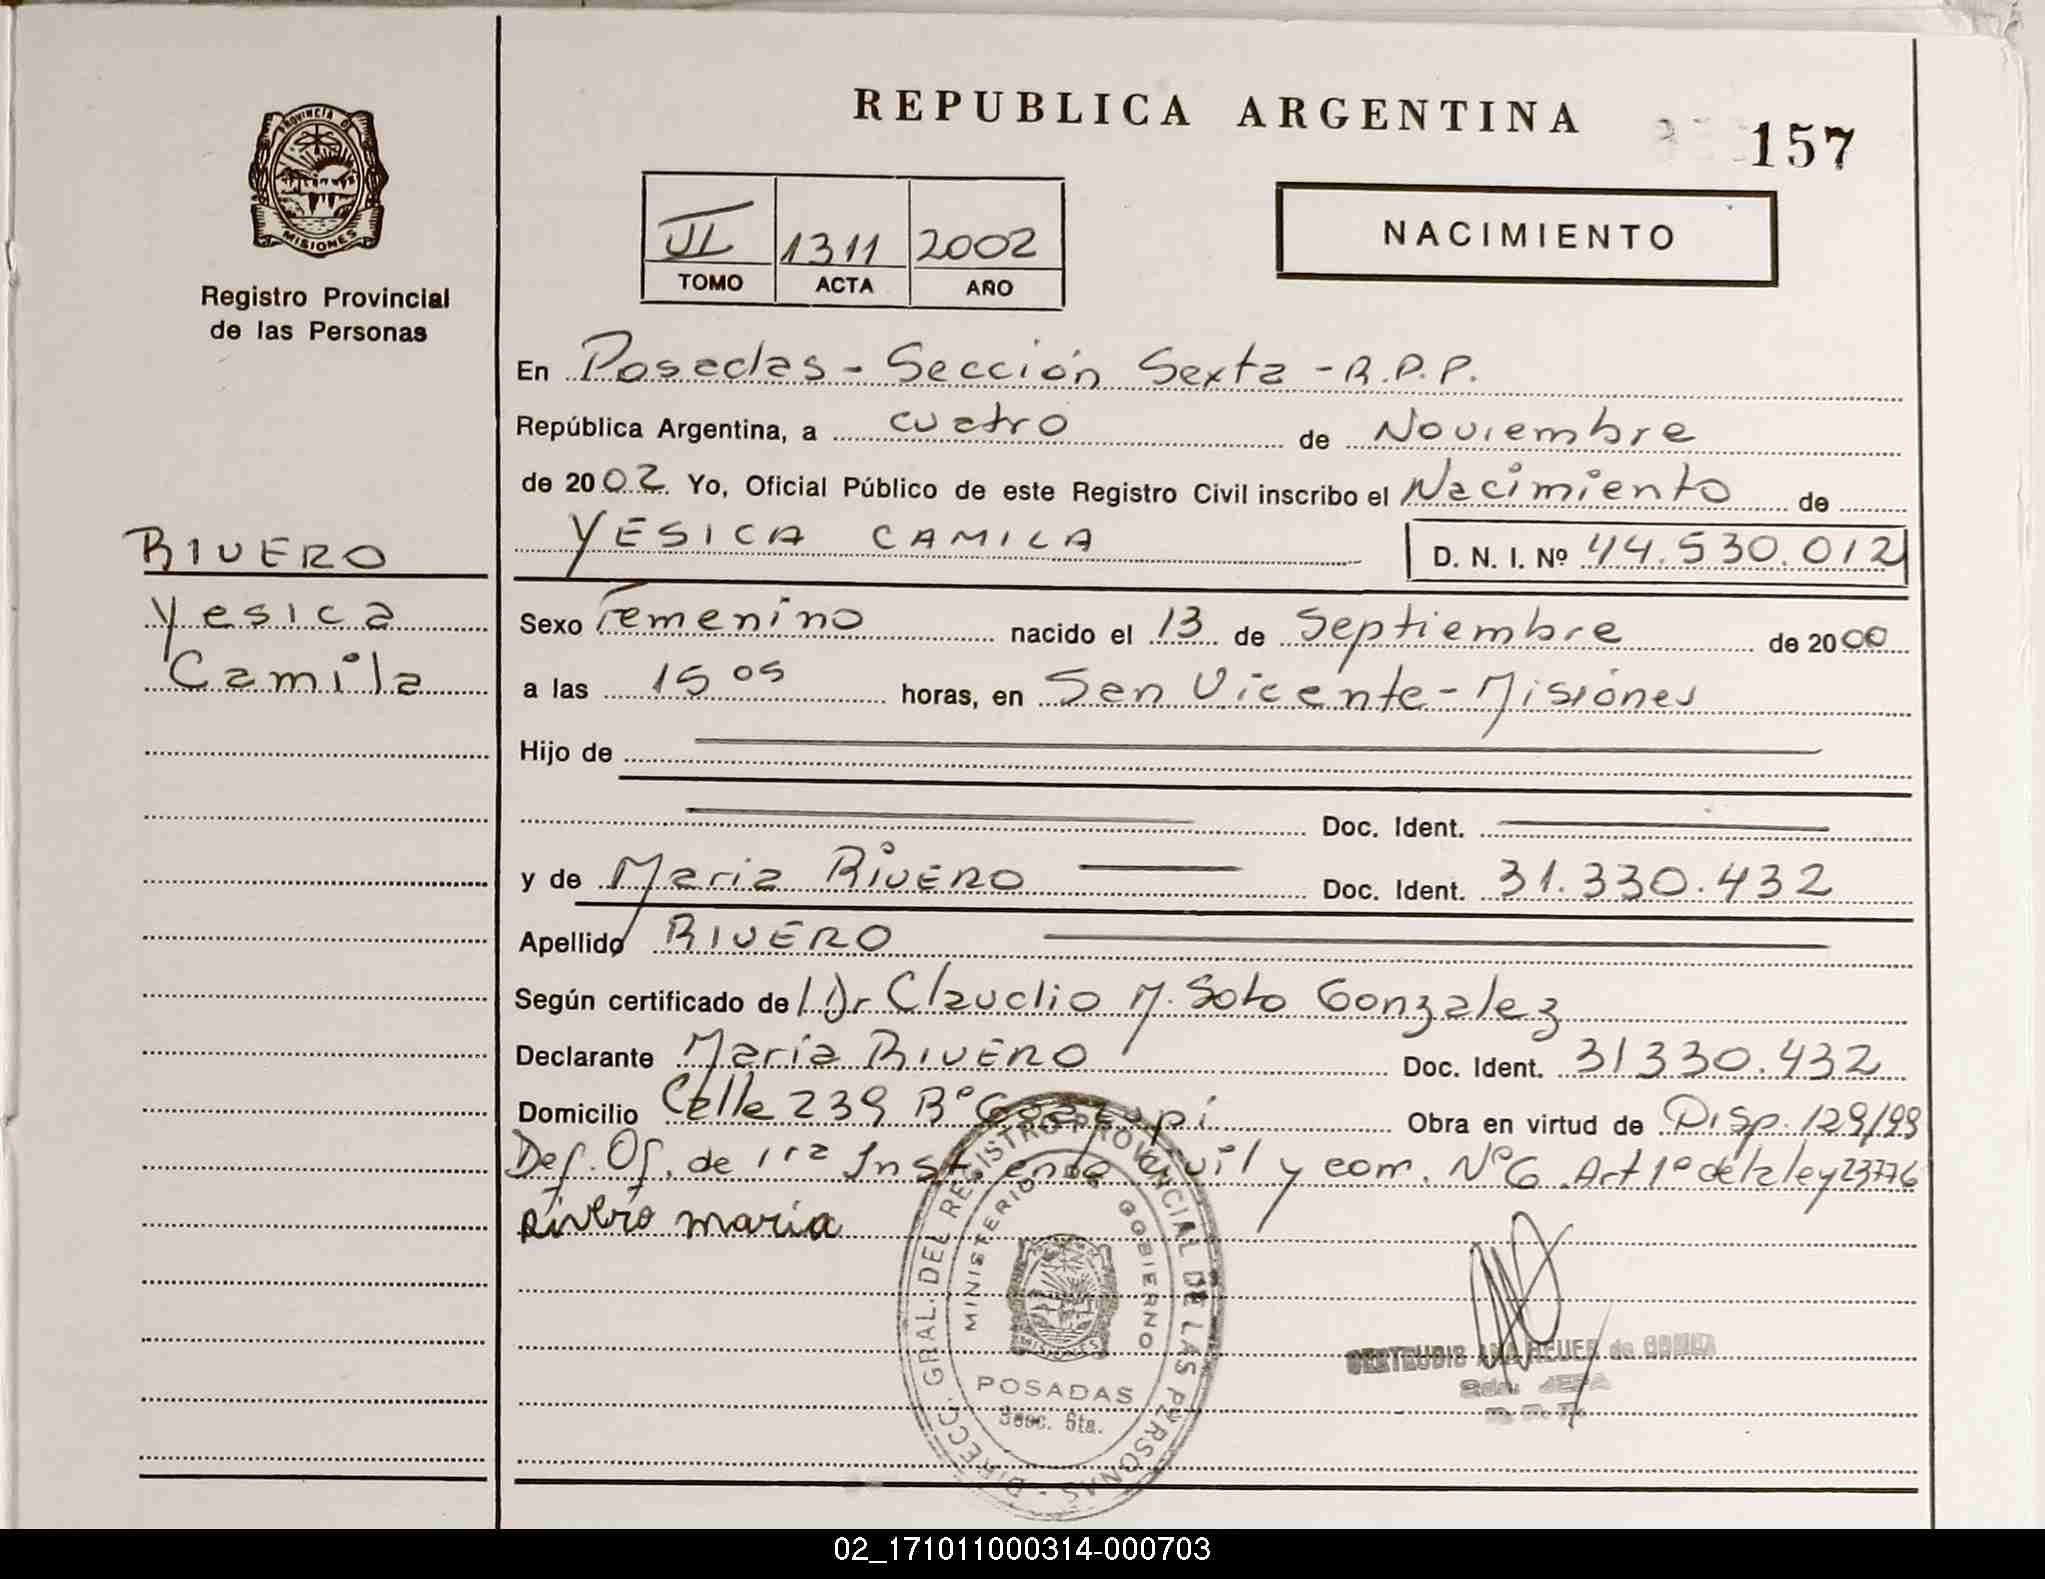 REPUBLICA ARGENTINA
157
PROVINCIA DE
MISIONES
Registro Provincial
de las Personas
VI 1311 2002
TOMO ACTA AÑO
NACIMIENTO
En Posadas - Sección Sexta - R.P.P.
República Argentina, a cuatro de Noviembre
de 2002 Yo, Oficial Público de este Registro Civil inscribo el Nacimiento de
YESICA CAMILA D. N. I. Nº 44.530.012
RIVERO
Yesica
Camila
Sexo Femenino nacido el 13 de Septiembre de 2000
a las 15 05 horas, en San Vicente - Misiones
Hijo de
Doc. Ident.
y de Maria RIVERO Doc. Ident. 31.330.432
Apellido RIVERO
Según certificado de Dr Claudio M. Soto Gonzalez
Declarante Maria RIVERO Doc. Ident. 31330.432
Domicilio Calle 239 Bº Obra en virtud de Disp. 129/99
Def. Of. de 1ra Inst en lo Civil y com. Nº 6 Art 1º de la ley 23776
Rivero maria
DIRECC. GRAL. DEL REGISTRO PROVINCIAL DE LAS PERSONAS
MINISTERIO DE GOBIERNO
MISIONES
POSADAS
Secc. 6ta.
GERTRUDIS ANA de
JEFA
02_171011000314-000703